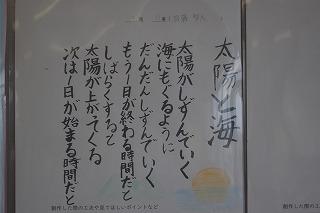 太陽と海
太陽がしずんでいく
海にもぐるように
だんだんしずんでいく
もう一日が終わる時間だと
しばらくすると
太陽が上がってくる
次は一日が始まる時間だと
創作した際の工夫や見てほしいポイントなど
創作した際の